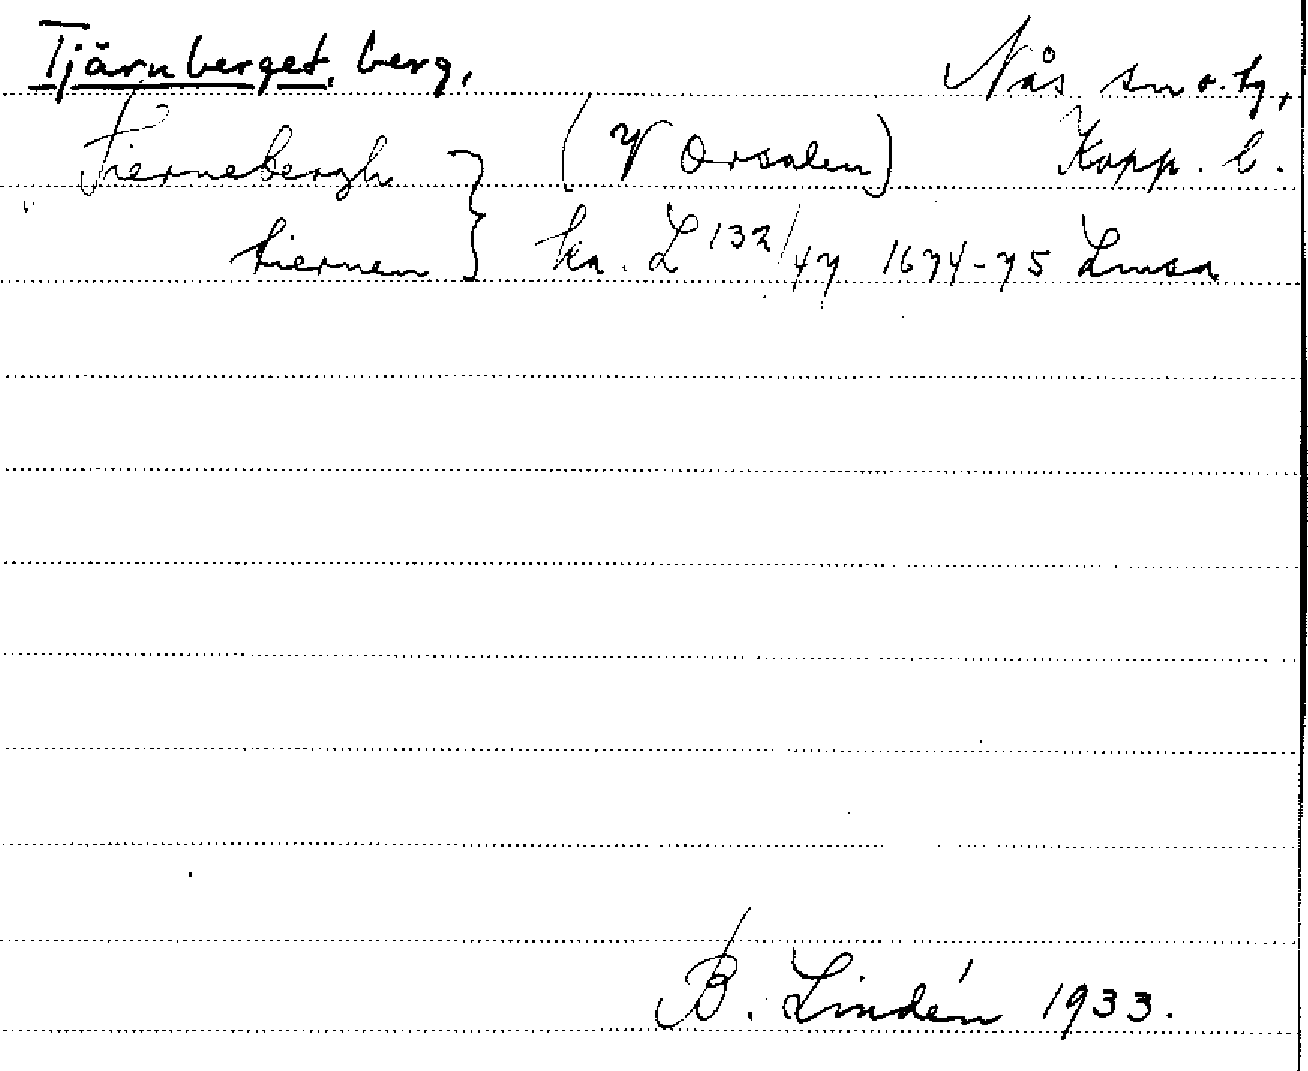 Tjärnberget, berg, Nås sn o. tg,
Tiernebergh (V Orsalen) Kopp. l.
tiernen ka. L 132/47 1674-75 Lmsa
B. Lindén 1933.